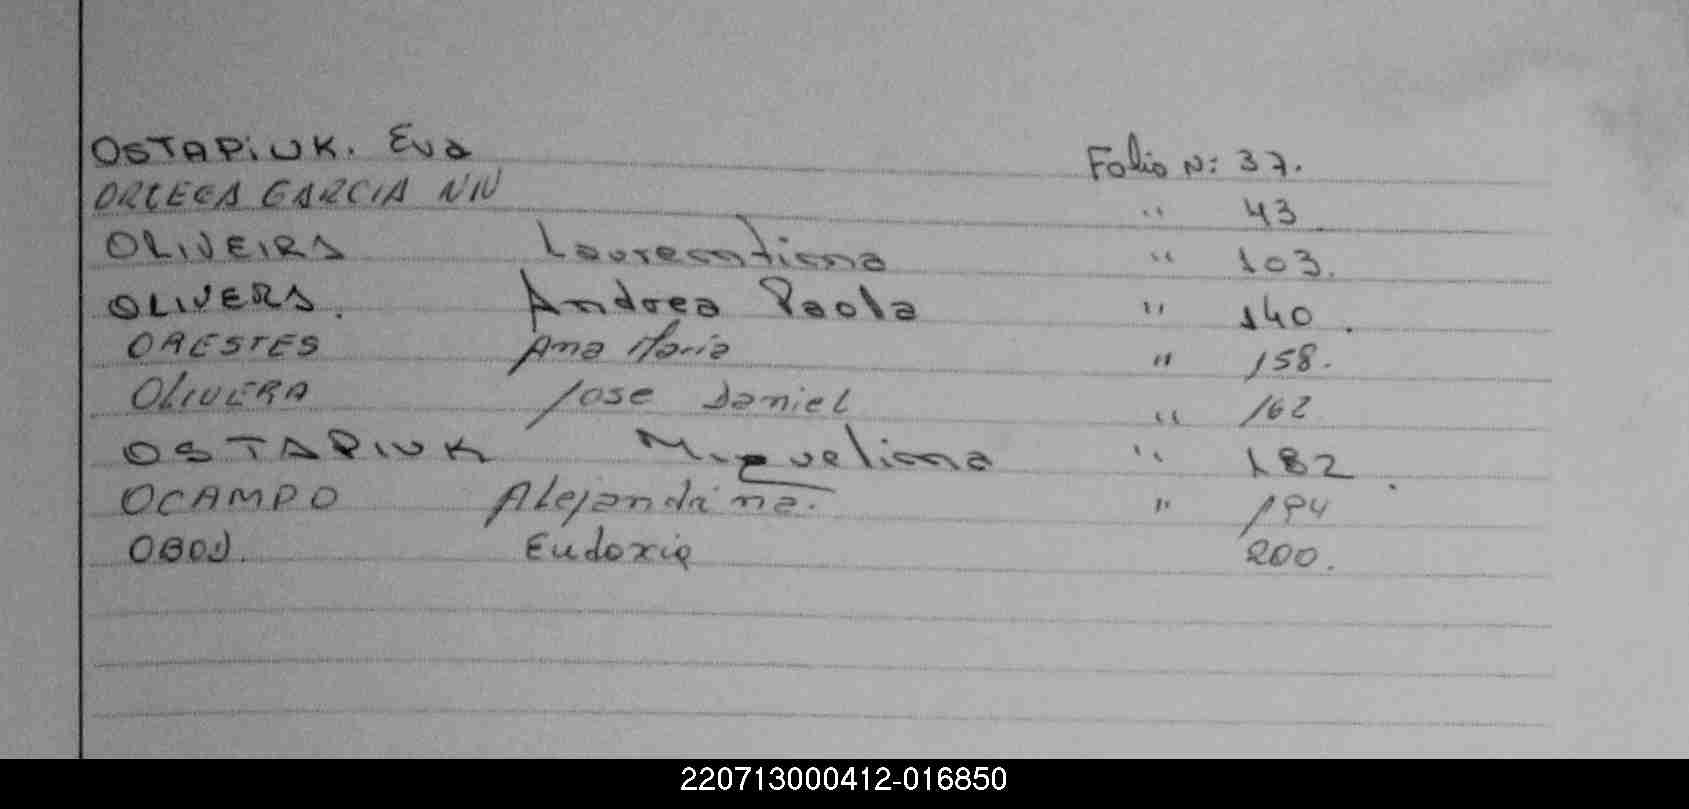 OSTAPIUK. Eva Folio N: 37.
ORTEGA GARCIA NN " 43
OLIVEIRA Laurentina " 103.
OLIVERA. Andrea Paola " 140.
ORESTES Ana Maria " 158.
OLIVERA Jose Daniel " 162
OSTAPIUK Miguelina " 182.
OCAMPO Alejandrina. " 194
Eudoxia 200.
220713000412-016850